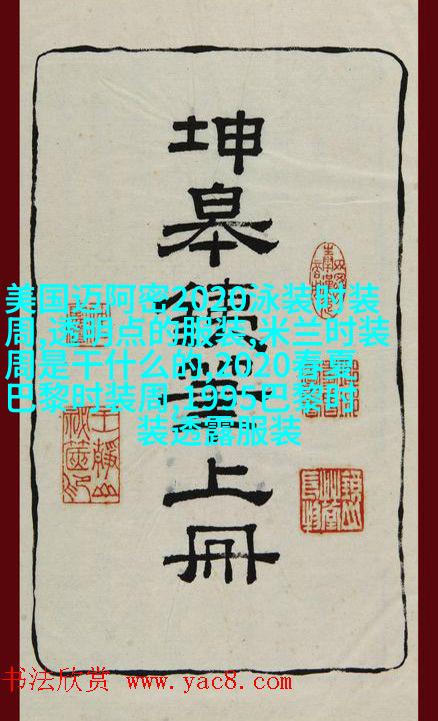 坤皋鐵筆上冊
美国迈阿密2020泳装时装
周,透明点的服装,米兰时装
周是干什么的,2020春夏
巴黎时装周,1995巴黎时
装透露服装
书法欣赏 www.yac8.com